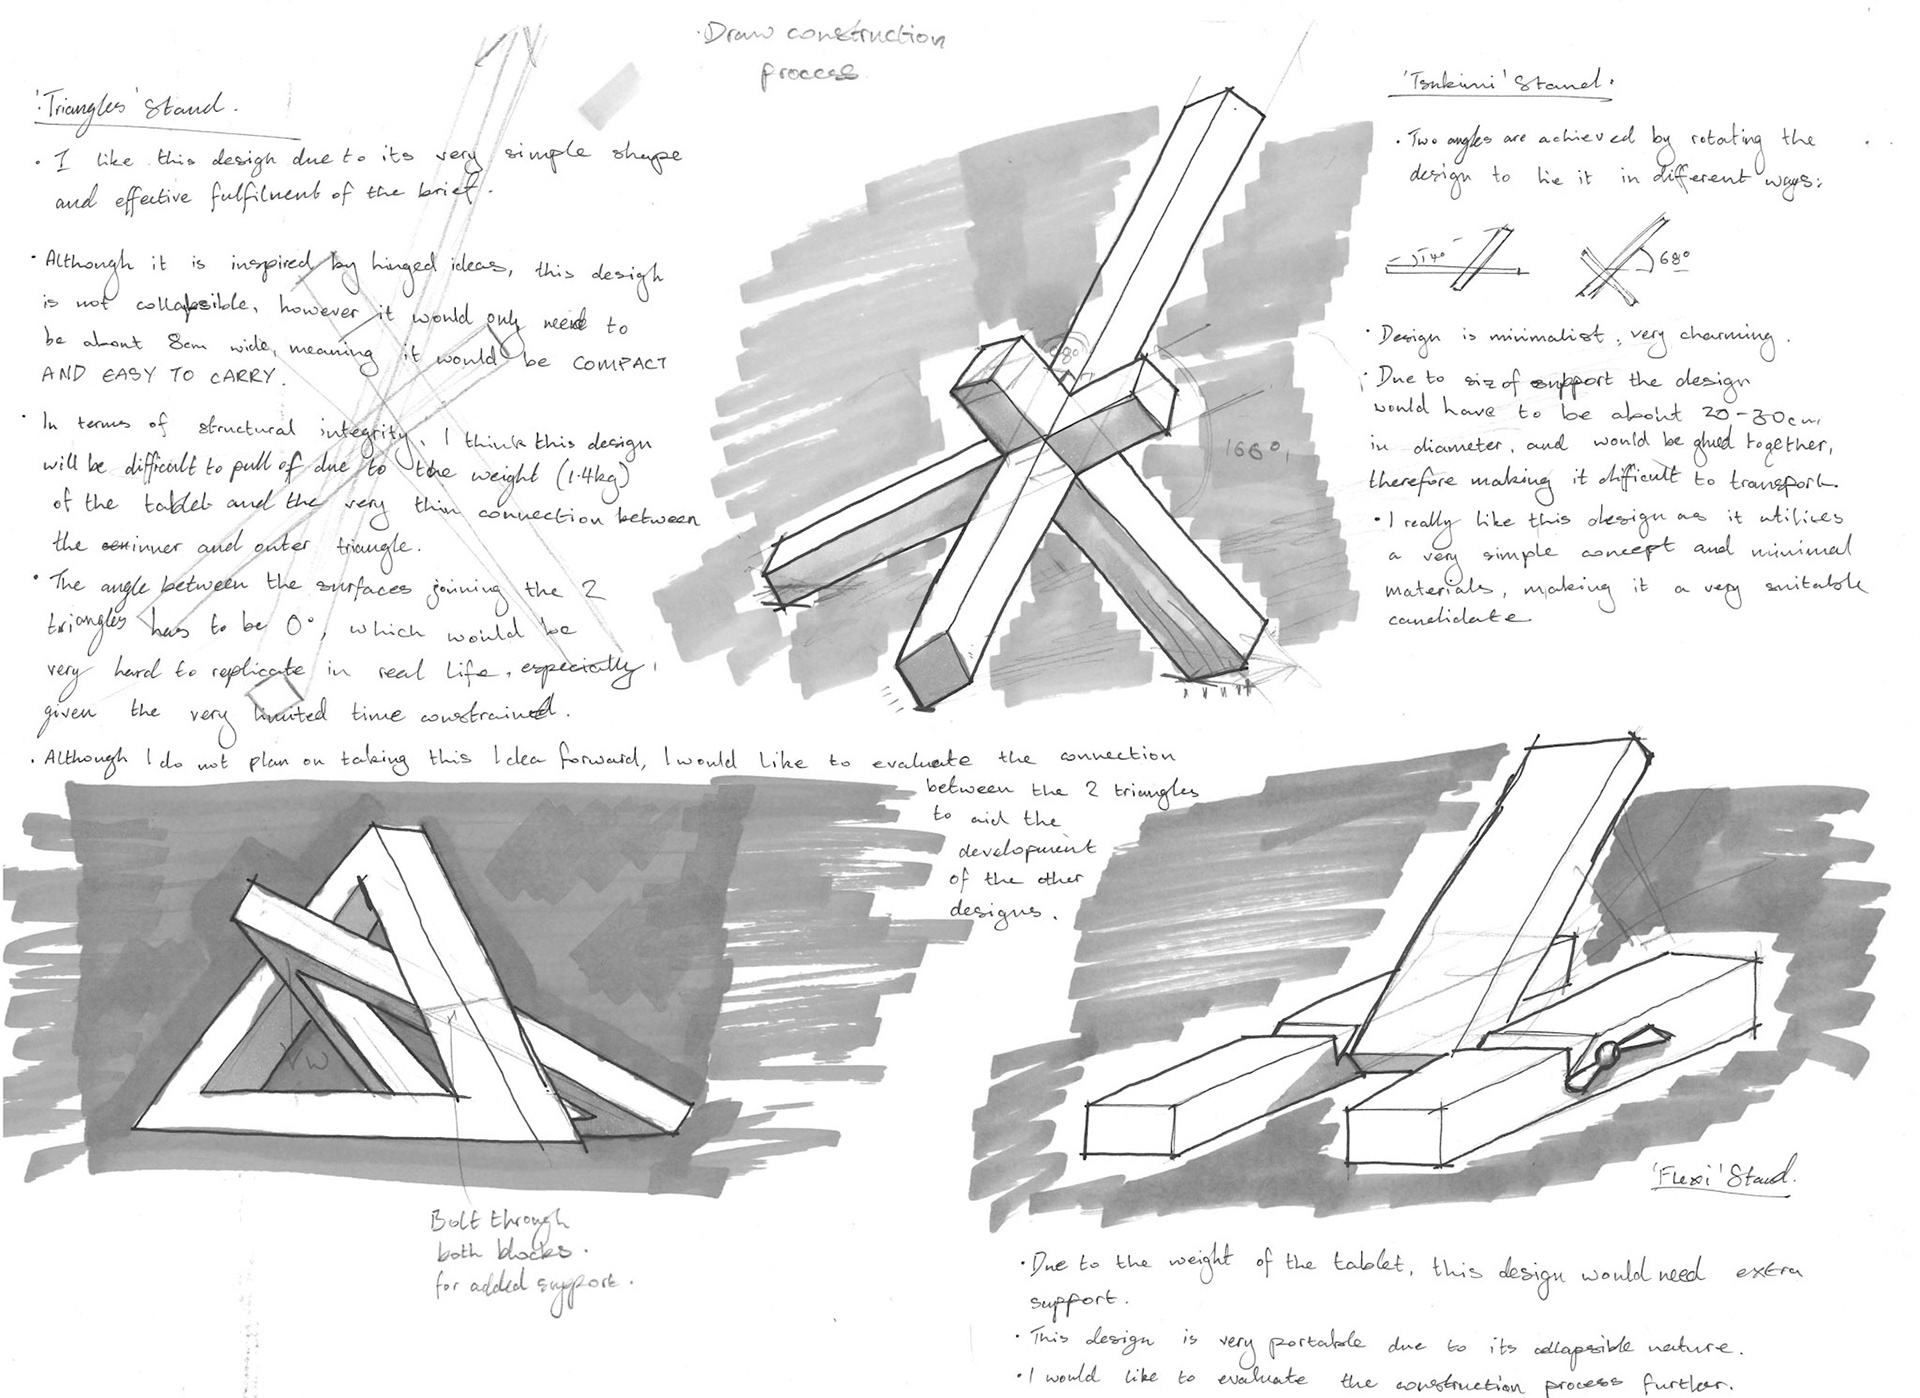 Draw construction
process
'Triangles' Stand.
• I like this design due to its very simple shape
and effective fulfilment of the brief.
• Although it is inspired by hinged ideas, this design
is not collapsible, however it would only need to
be about 8cm wide, meaning it would be COMPACT
AND EASY TO CARRY.
• In terms of structural integrity, I think this design
will be difficult to pull of due to the weight (1.4kg)
of the tablet and the very thin connection between
the inner and outer triangle.
• The angle between the surfaces joining the 2
triangles has to be 0°, which would be
very hard to replicate in real life, especially,
given the very limited time constrained.
• Although I do not plan on taking this Idea forward, I would like to evaluate the connection
between the 2 triangles
to aid the
development
of the other
designs.
Bolt through
both blocks.
for added support.
'Tsukimi' Stand:
• Two angles are achieved by rotating the
design to lie it in different ways:
14°
68°
• Design is minimalist, very charming.
• Due to siz of support the design
would have to be about 20-30cm
in diameter, and would be glued together,
therefore making it difficult to transport.
• I really like this design as it utilises
a very simple concept and minimal
materials, making it a very suitable
candidate
166°
'Flexi' Stand.
• Due to the weight of the tablet, this design would need extra
support.
• This design is very portable due to its collapsible nature.
• I would like to evaluate the construction process further.